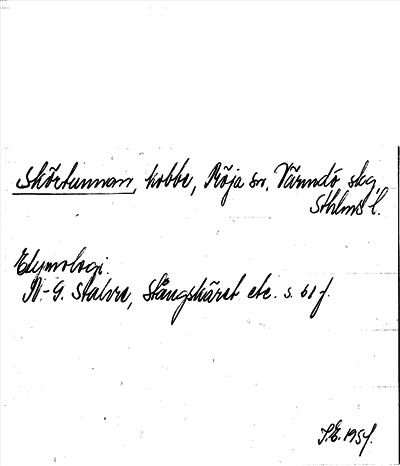 Skörtunnan, kobbe, Möja sn, Värmdö skg,
Sthlms l.
Etymologi.
N.-G. Stahre, Stångskäret etc. s. 61 f.
S.E. 1954.